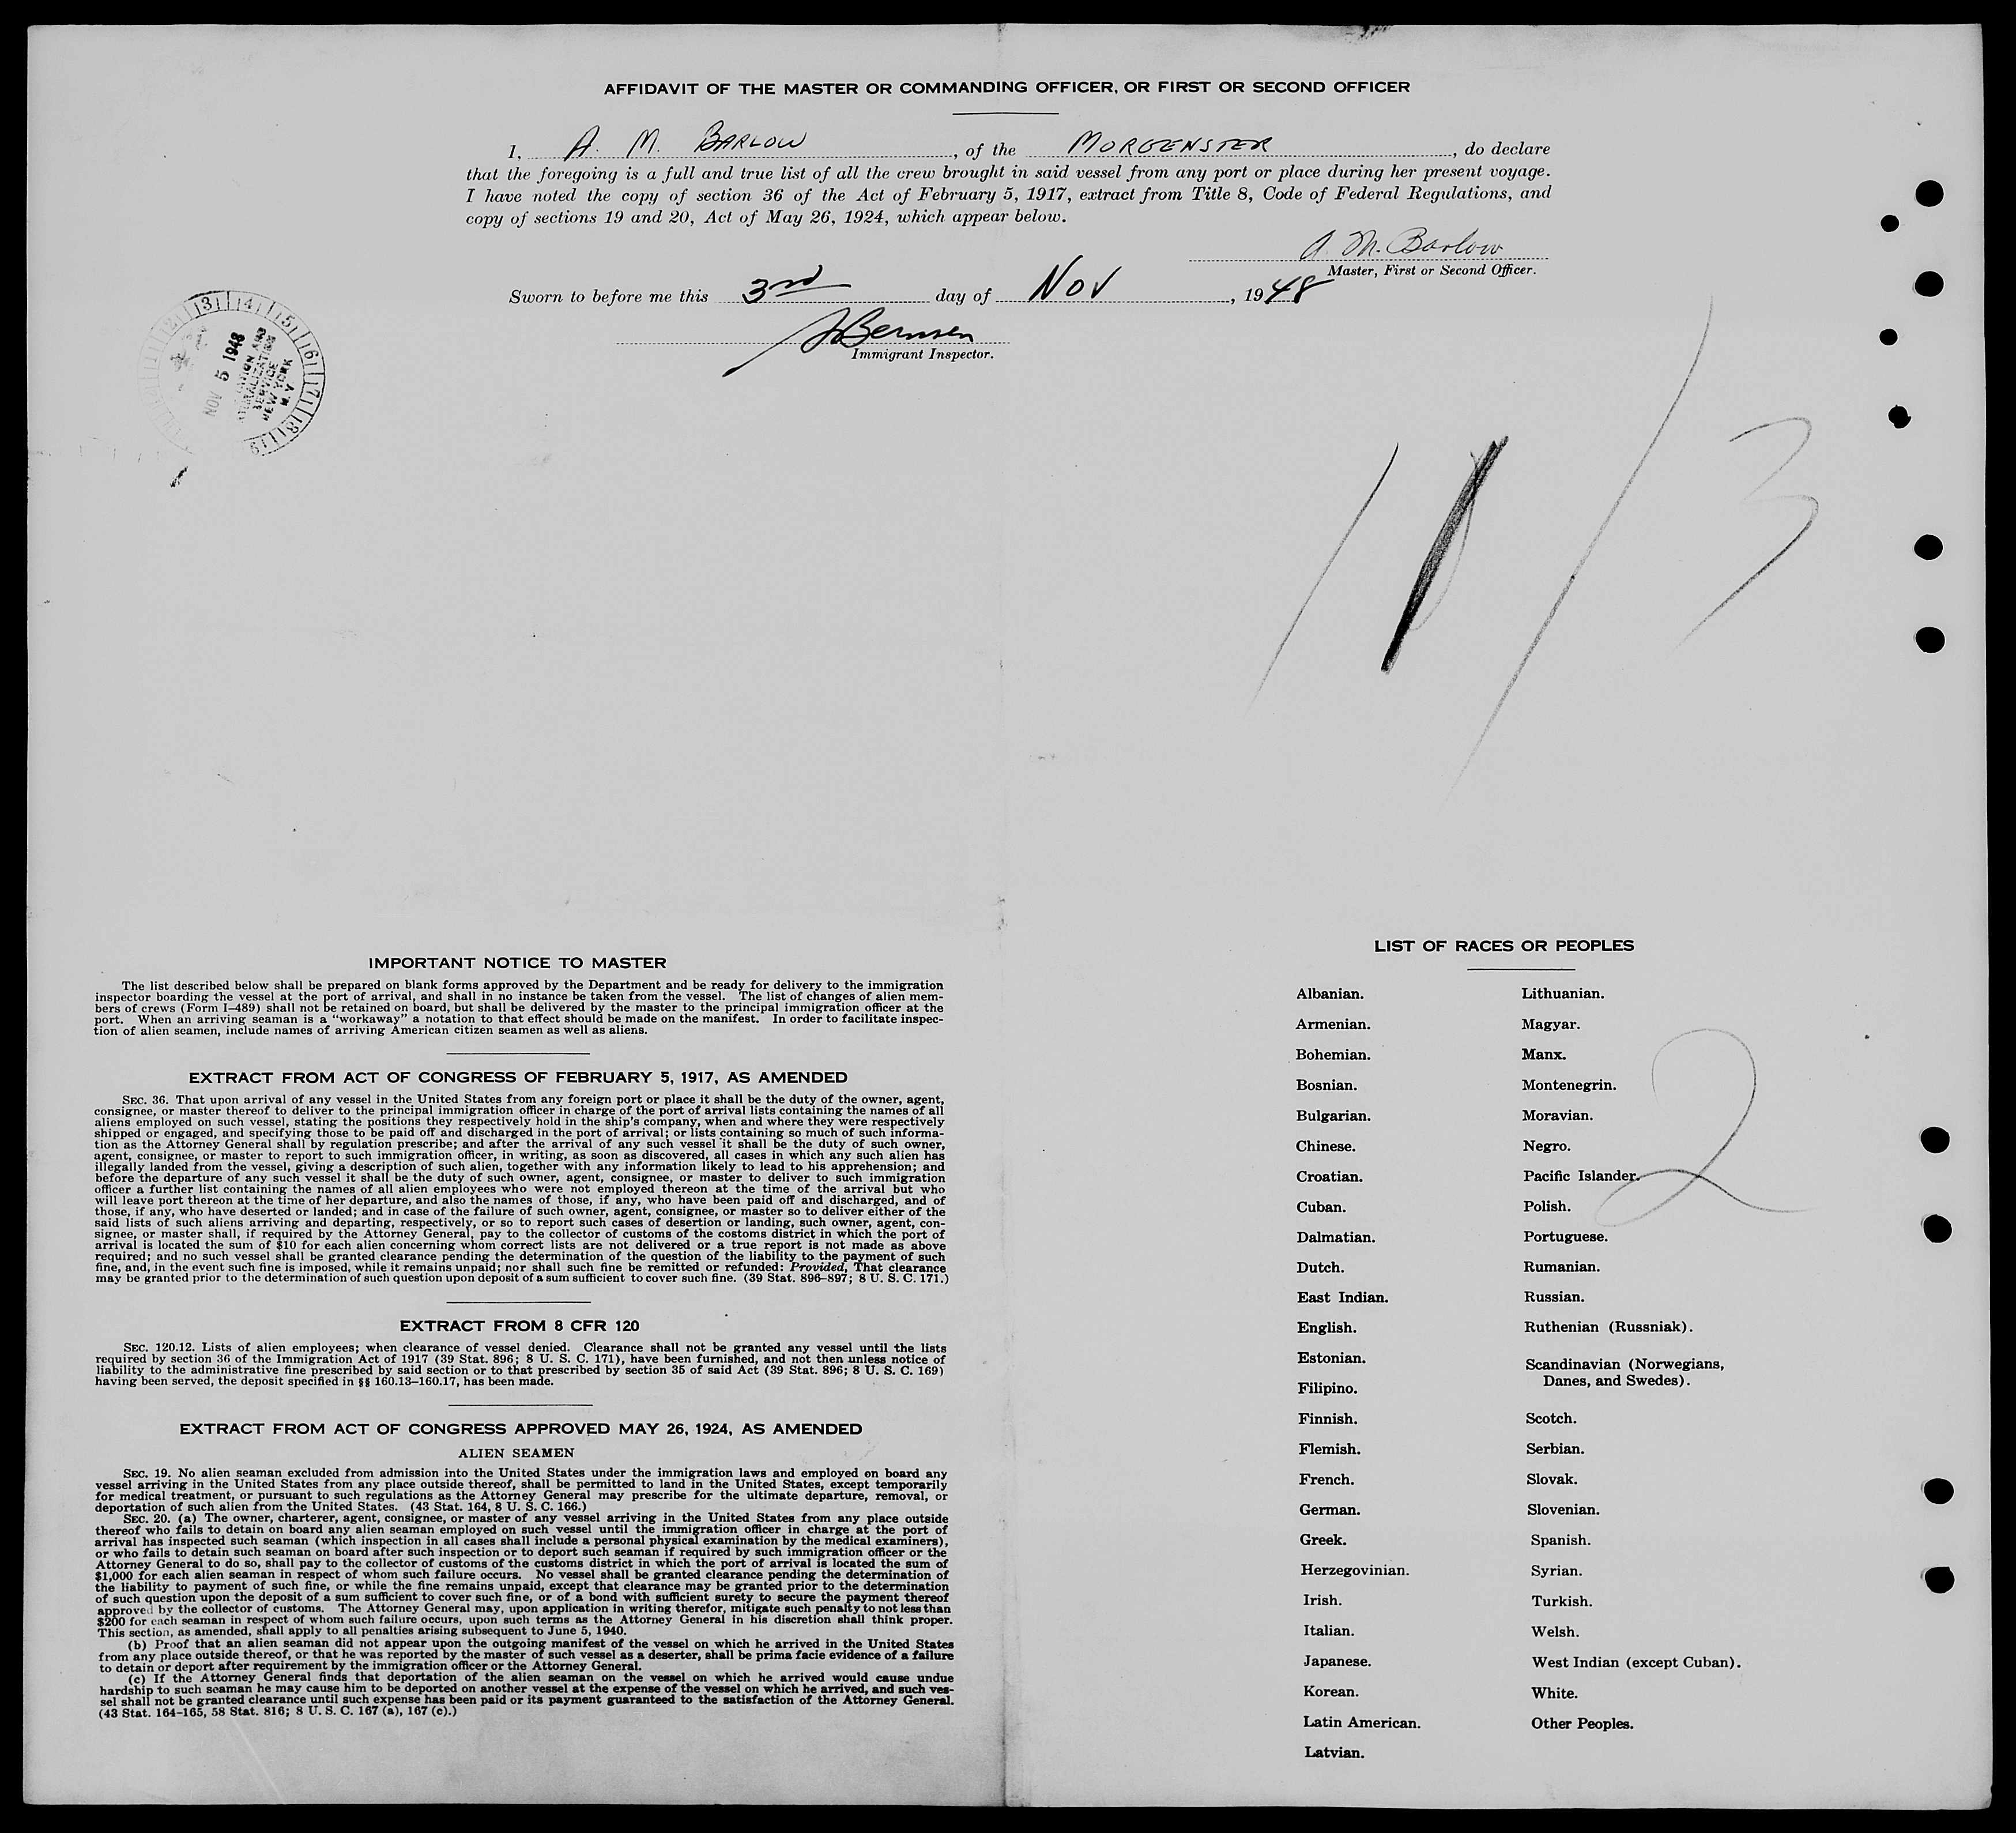 AFFIDAVIT OF THE MASTER OR COMMANDING OFFICER, OR FIRST OR SECOND OFFICER
I, A. M. BARLOW, of the MORGENSTER, do declare
that the foregoing is a full and true list of all the crew brought in said vessel from any port or place during her present voyage.
I have noted the copy of section 36 of the Act of February 5, 1917, extract from Title 8, Code of Federal Regulations, and
copy of sections 19 and 20, Act of May 26, 1924, which appear below.
A. M. Barlow
Master, First or Second Officer.
Sworn to before me this 3rd day of Nov, 1948
Immigrant Inspector.
NOV 5 1948
SERVICE
NEW YORK
N.Y
1 / 3
IMPORTANT NOTICE TO MASTER
The list described below shall be prepared on blank forms approved by the Department and be ready for delivery to the immigration
inspector boarding the vessel at the port of arrival, and shall in no instance be taken from the vessel. The list of changes of alien mem-
bers of crews (Form I–489) shall not be retained on board, but shall be delivered by the master to the principal immigration officer at the
port. When an arriving seaman is a “workaway” a notation to that effect should be made on the manifest. In order to facilitate inspec-
tion of alien seamen, include names of arriving American citizen seamen as well as aliens.
EXTRACT FROM ACT OF CONGRESS OF FEBRUARY 5, 1917, AS AMENDED
SEC. 36. That upon arrival of any vessel in the United States from any foreign port or place it shall be the duty of the owner, agent,
consignee, or master thereof to deliver to the principal immigration officer in charge of the port of arrival lists containing the names of all
aliens employed on such vessel, stating the positions they respectively hold in the ship's company, when and where they were respectively
shipped or engaged, and specifying those to be paid off and discharged in the port of arrival; or lists containing so much of such informa-
tion as the Attorney General shall by regulation prescribe; and after the arrival of any such vessel it shall be the duty of such owner,
agent, consignee, or master to report to such immigration officer, in writing, as soon as discovered, all cases in which any such alien has
illegally landed from the vessel, giving a description of such alien, together with any information likely to lead to his apprehension; and
before the departure of any such vessel it shall be the duty of such owner, agent, consignee, or master to deliver to such immigration
officer a further list containing the names of all alien employees who were not employed thereon at the time of the arrival but who
will leave port thereon at the time of her departure, and also the names of those, if any, who have been paid off and discharged, and of
those, if any, who have deserted or landed; and in case of the failure of such owner, agent, consignee, or master so to deliver either of the
said lists of such aliens arriving and departing, respectively, or so to report such cases of desertion or landing, such owner, agent, con-
signee, or master shall, if required by the Attorney General, pay to the collector of customs of the costoms district in which the port of
arrival is located the sum of $10 for each alien concerning whom correct lists are not delivered or a true report is not made as above
required; and no such vessel shall be granted clearance pending the determination of the question of the liability to the payment of such
fine, and, in the event such fine is imposed, while it remains unpaid; nor shall such fine be remitted or refunded: Provided, That clearance
may be granted prior to the determination of such question upon deposit of a sum sufficient to cover such fine. (39 Stat. 896–897; 8 U. S. C. 171.)
EXTRACT FROM 8 CFR 120
SEC. 120.12. Lists of alien employees; when clearance of vessel denied. Clearance shall not be granted any vessel until the lists
required by section 36 of the Immigration Act of 1917 (39 Stat. 896; 8 U. S. C. 171), have been furnished, and not then unless notice of
liability to the administrative fine prescribed by said section or to that prescribed by section 35 of said Act (39 Stat. 896; 8 U. S. C. 169)
having been served, the deposit specified in §§ 160.13–160.17, has been made.
EXTRACT FROM ACT OF CONGRESS APPROVED MAY 26, 1924, AS AMENDED
ALIEN SEAMEN
SEC. 19. No alien seaman excluded from admission into the United States under the immigration laws and employed on board any
vessel arriving in the United States from any place outside thereof, shall be permitted to land in the United States, except temporarily
for medical treatment, or pursuant to such regulations as the Attorney General may prescribe for the ultimate departure, removal, or
deportation of such alien from the United States. (43 Stat. 164, 8 U. S. C. 166.)
SEC. 20. (a) The owner, charterer, agent, consignee, or master of any vessel arriving in the United States from any place outside
thereof who fails to detain on board any alien seaman employed on such vessel until the immigration officer in charge at the port of
arrival has inspected such seaman (which inspection in all cases shall include a personal physical examination by the medical examiners),
or who fails to detain such seaman on board after such inspection or to deport such seaman if required by such immigration officer or the
Attorney General to do so, shall pay to the collector of customs of the customs district in which the port of arrival is located the sum of
$1,000 for each alien seaman in respect of whom such failure occurs. No vessel shall be granted clearance pending the determination of
the liability to payment of such fine, or while the fine remains unpaid, except that clearance may be granted prior to the determination
of such question upon the deposit of a sum sufficient to cover such fine, or of a bond with sufficient surety to secure the payment thereof
approved by the collector of customs. The Attorney General may, upon application in writing therefor, mitigate such penalty to not less than
$200 for each seaman in respect of whom such failure occurs, upon such terms as the Attorney General in his discretion shall think proper.
This section, as amended, shall apply to all penalties arising subsequent to June 5, 1940.
(b) Proof that an alien seaman did not appear upon the outgoing manifest of the vessel on which he arrived in the United States
from any place outside thereof, or that he was reported by the master of such vessel as a deserter, shall be prima facie evidence of a failure
to detain or deport after requirement by the immigration officer or the Attorney General.
(c) If the Attorney General finds that deportation of the alien seaman on the vessel on which he arrived would cause undue
hardship to such seaman he may cause him to be deported on another vessel at the expense of the vessel on which he arrived, and such ves-
sel shall not be granted clearance until such expense has been paid or its payment guaranteed to the satisfaction of the Attorney General.
(43 Stat. 164–165, 58 Stat. 816; 8 U. S. C. 167 (a), 167 (c).)
LIST OF RACES OR PEOPLES
Albanian.
Armenian.
Bohemian.
Bosnian.
Bulgarian.
Chinese.
Croatian.
Cuban.
Dalmatian.
Dutch.
East Indian.
English.
Estonian.
Filipino.
Finnish.
Flemish.
French.
German.
Greek.
Herzegovinian.
Irish.
Italian.
Japanese.
Korean.
Latin American.
Latvian.
Lithuanian.
Magyar.
Manx.
Montenegrin.
Moravian.
Negro.
Pacific Islander.
Polish.
Portuguese.
Rumanian.
Russian.
Ruthenian (Russniak).
Scandinavian (Norwegians,
Danes, and Swedes).
Scotch.
Serbian.
Slovak.
Slovenian.
Spanish.
Syrian.
Turkish.
Welsh.
West Indian (except Cuban).
White.
Other Peoples.
2